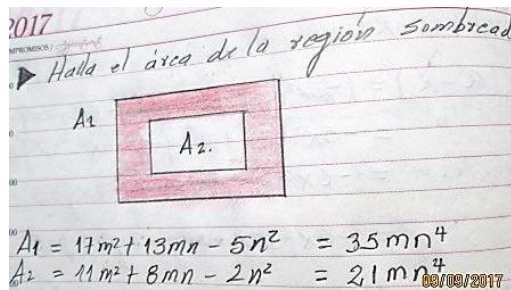 2017
MPROMISOS /
Halla el área de la región sombread
A1
A2.
A1 = 17m² + 13mn - 5n² = 35mn⁴
A2 = 11m² + 8mn - 2n² = 21mn⁴
09/09/2017